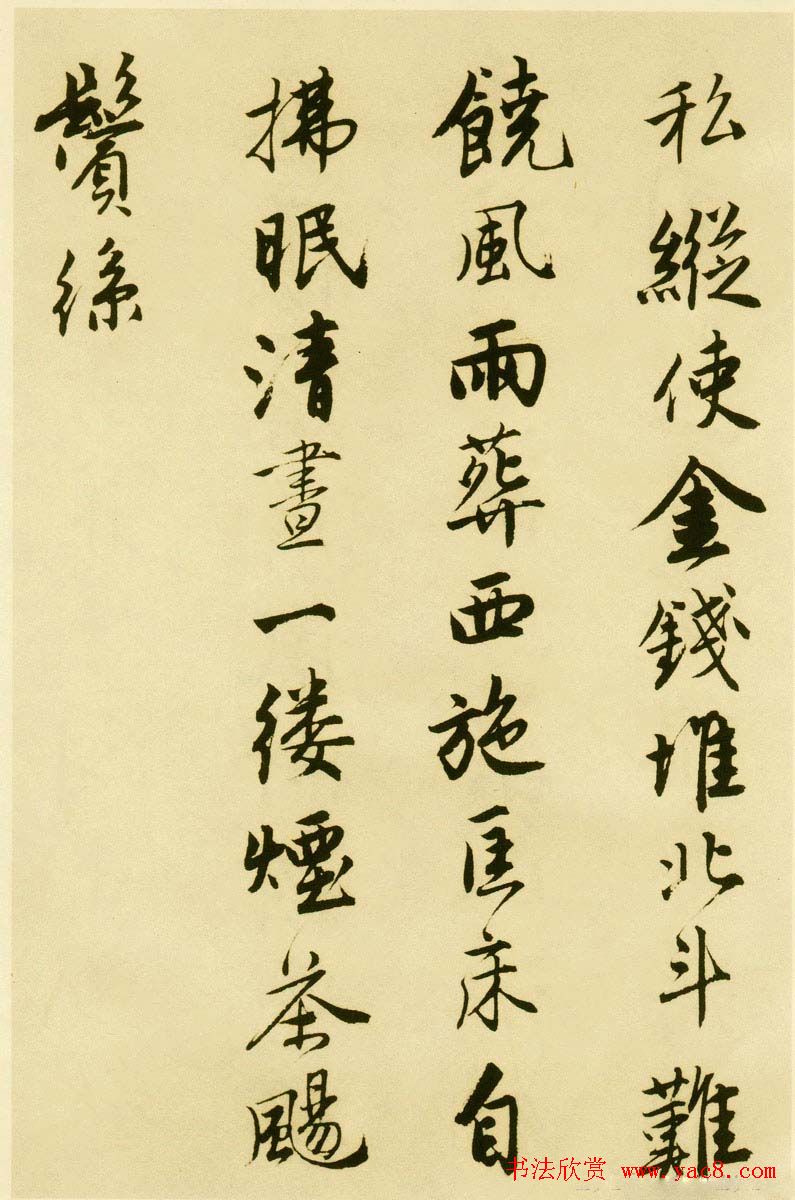 私縱使金錢堆北斗難
饒風雨葬西施匡床自
拂眠清晝一縷煙茶颺
鬢絲
书法欣赏 www.yac8.com